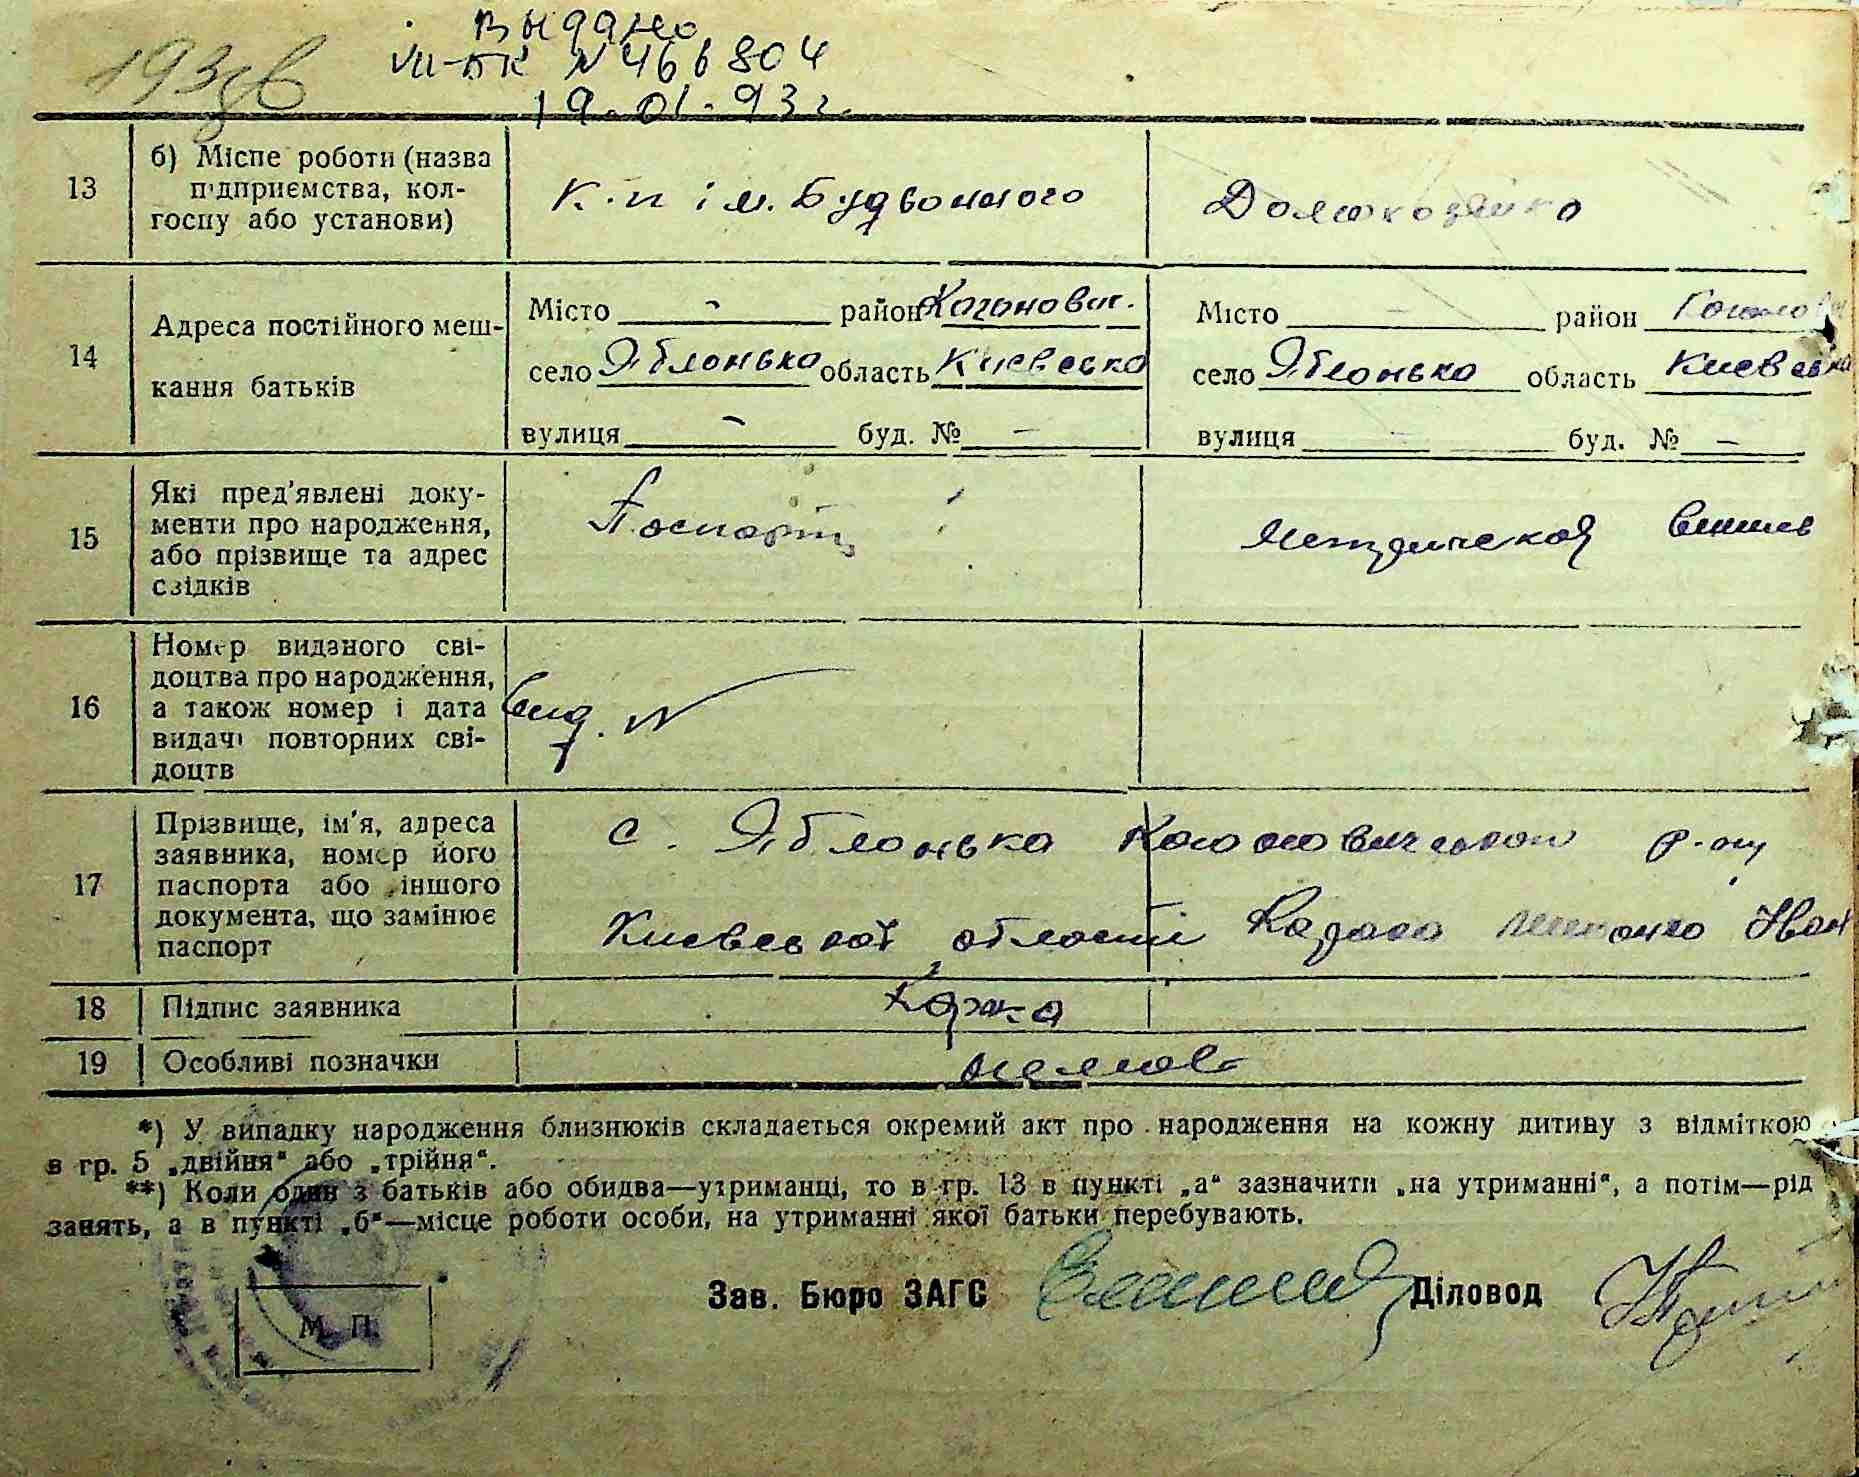 Выдано
VII-БК N 466804
19.01.93г.
13
б) Місце роботи (назва
підприємства, кол-
госпу або установи)
К.п ім. Будьонного
Домохозяйка
14
Адреса постійного меш-
кання батьків
Місто - район Кагонович.
село Яблонька область Киевська
вулиця - буд. № -
Місто район
село Яблонька область Киевська
вулиця буд. № -
15
Які пред'явлені доку-
менти про народження,
або прізвище та адрес
свідків
Паспорти
16
Номер виданого сві-
доцтва про народження,
а також номер і дата
видачі повторних сві-
доцтв
N
17
Прізвище, ім'я, адреса
заявника, номер його
паспорта або іншого
документа, що замінює
паспорт
с. Яблонька Кагановичського р-ну
Киевської області Іван
18
Підпис заявника
19
Особливі позначки
немає
*) У випадку народження близнюків складається окремий акт про народження на кожну дитину з відміткою
в гр. 5 „двійня“ або „трійня“.
**) Коли один з батьків або обидва—утриманці, то в гр. 13 в пункті „а“ зазначити „на утриманні“, а потім—рід
занять, а в пункті „б“—місце роботи особи, на утриманні якої батьки перебувають.
Зав. Бюро ЗАГС
Діловод
М. П.